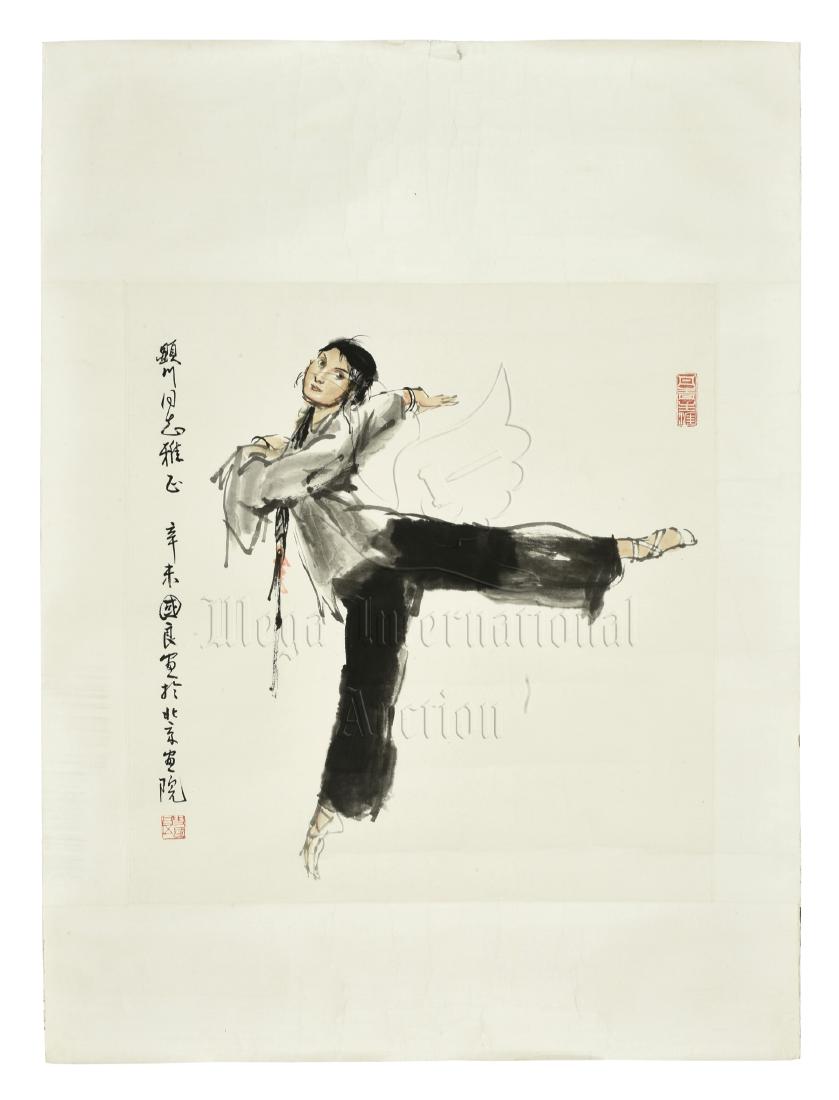 顯川同志雅正 辛未國良画於北京画院
Mega International
Auction